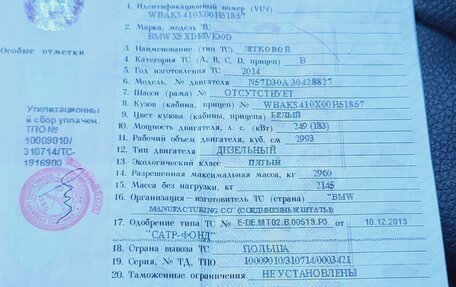 1. Идентификационный номер (VIN)
WBAKS410X00H51857
2. Марка, модель ТС
BMW X5 XDRIVE30D
3. Наименование (тип ТС) ЛЕГКОВОЙ
4. Категория ТС (А, В, С, D, прицеп) B
5. Год изготовления ТС 2014
6. Модель, № двигателя N57D30A 30428827
7. Шасси (рама) № ОТСУТСТВУЕТ
8. Кузов (кабина, прицеп) № WBAKS410X00H51857
9. Цвет кузова (кабины, прицепа) БЕЛЫЙ
10. Мощность двигателя, л. с. (кВт) 249 (183)
11. Рабочий объем двигателя, куб. см 2993
12. Тип двигателя ДИЗЕЛЬНЫЙ
13. Экологический класс ПЯТЫЙ
14. Разрешенная максимальная масса, кг 2960
15. Масса без нагрузки, кг 2145
16. Организация—изготовитель ТС (страна) "BMW
MANUFACTURING CO" (СОЕДИНЕННЫЕ ШТАТЫ)
17. Одобрение типа ТС № E-DE.MT02.B.00513.P3 от 10.12.2013
"САТР-ФОНД"
18. Страна вывоза ТС ПОЛЬША
19. Серия, № ТД, ТПО 10009010/310714/0003421
20. Таможенные ограничения НЕ УСТАНОВЛЕНЫ
Особые отметки
Утилизационны
й сбор уплачен.
ТПО №
10009010/
310714/ТС-
1916900